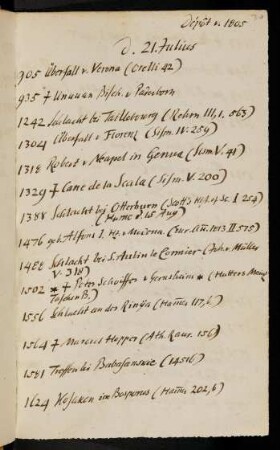 Dépôt v. 1805
d. 21. Julius
905 Überfall v. Verona (Orelli 42)
935 † Unwan Bisch. v. Paderborn
1242 Schlacht bei Taillebourg (Rehm III, 1, 563)
1304 Überfall v. Florenz (Sism. IV. 259)
1318 Robert v. Neapel in Genua (Sism V. 41)
1329 † Cane de la Scala (Sism. V. 200)
1388 Schlacht bei Otterburn (Scott's
(Hume d 15. Aug)
1476 geb. Alfons I. Hz. v. Modena
1488 Schlacht bei S. Aubin le Cormier (Joh. v. Müller
V. 318)
1502 * † Peter Schöffer v. Gernsheim
TaschenB.)
1556 Schlacht an der Rinya (Ham̄
1564 † Marcus Hopper (Ath. Raur. 156)
1581 Treffen bei
1624 Kosaken im Bosporus (Ham̄ 202, 6)